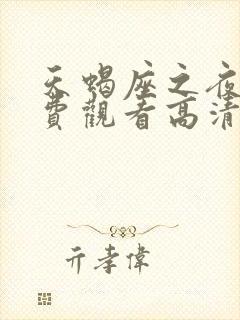 天蝎座之夜
費觀看高清
亓孝偉